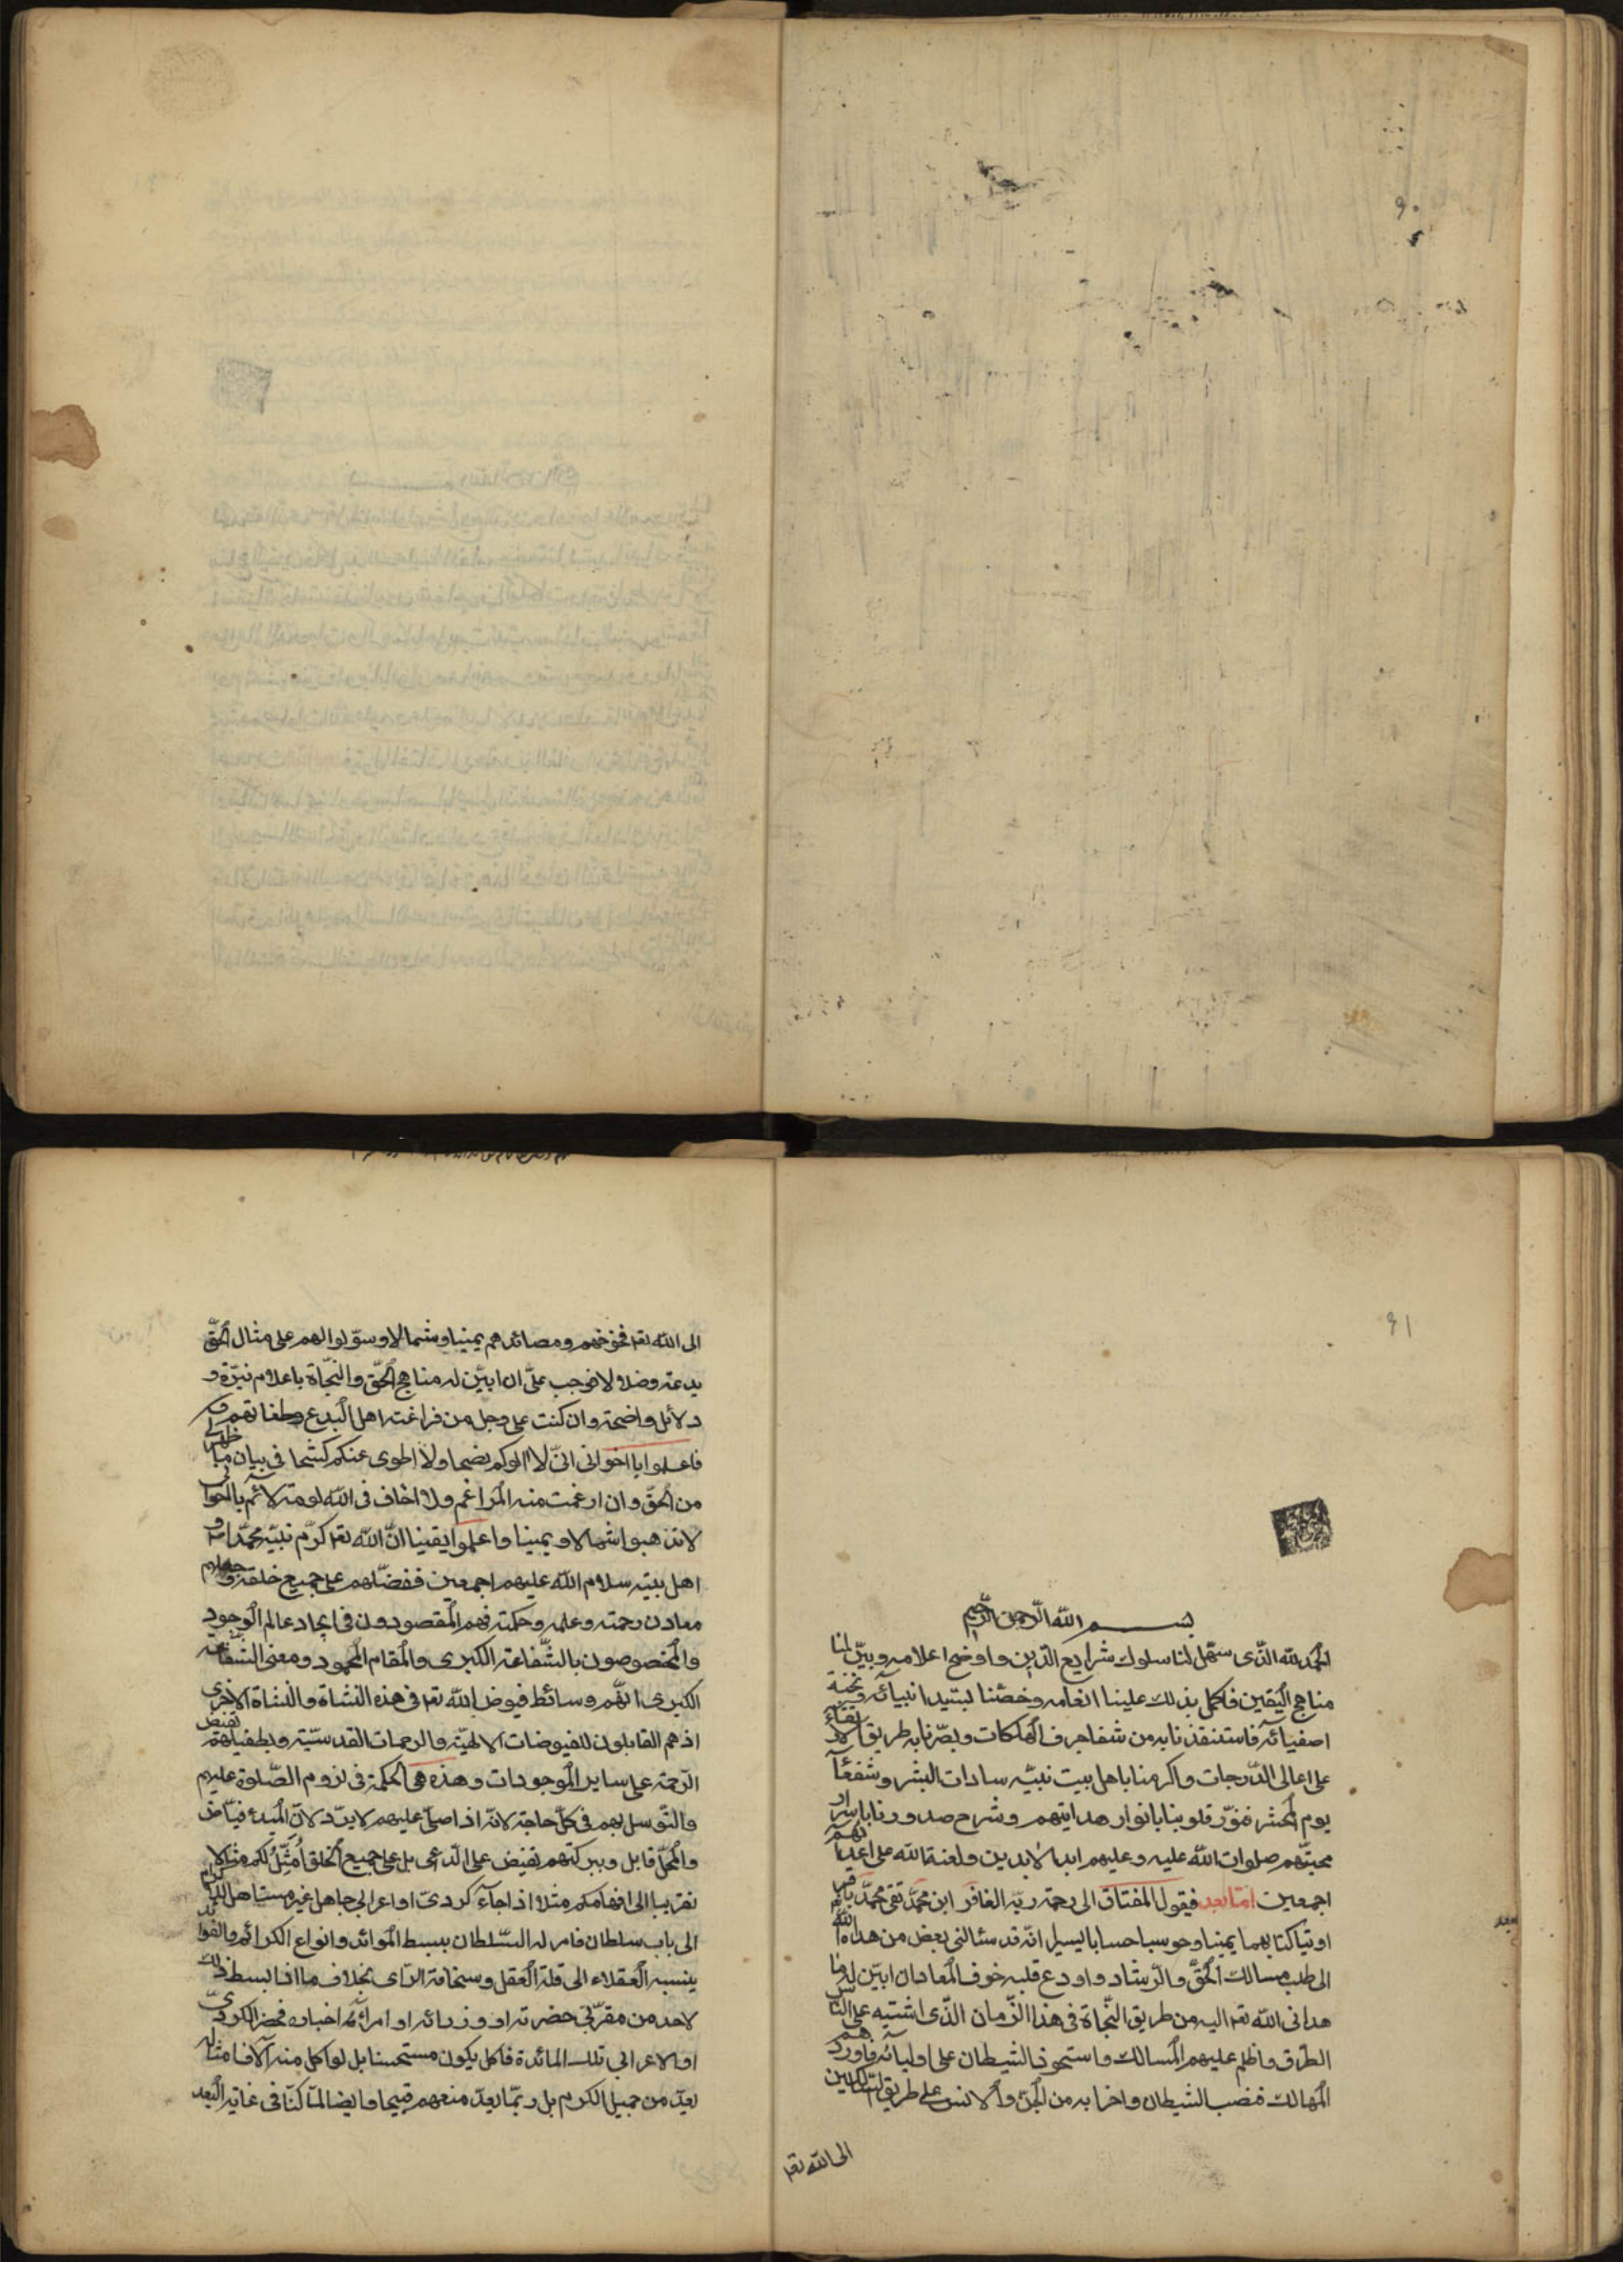 ٩٠
٩١
بسم الله الرحمن الرحيم
الحمد لله الذى سهّل لنا سلوك شرايع الدّين واوضح اعلامه وبيّن لنا
مناهج اليقين فاكمل بذلك علينا انعامه وخصّنا بسيّد انبيائه ونخبة
اصفيائه فاستنقذنا به من شفا جرف الهلكات وبصّرنا به طريق الارتقاء
على اعالى الدّرجات واكرمنا باهل بيت نبيّه سادات البشر وشفعاء
يوم المحشر فنوّر قلوبنا بانوار هدايتهم وشرح صدورنا باسرار
محبّتهم صلوات الله عليه وعليهم ابد الابدين ولعنة الله على اعدائهم
اجمعين امّا بعد فيقول المفتاق الى رحمة ربّه الغافر ابن محمّد تقى محمّد باقر
اوتيا كتابهما يمينا وحوسبا حسابا يسيرا انّه قد سئالنى بعض من هداه الله
الى طلب مسالك الحقّ والرّشاد واودع قلبه خوف المعاد ان ابيّن له ما
هدانى الله تعا اليه من طريق النّجاة فى هذا الزّمان الّذى اشتبه على النّاس
الطّرق واظلم عليهم المسالك واستحوذ الشيطان على اوليائه فاوردهم
المهالك فنصب الشيطان واحزابه من الجنّ والانس على طريق السّالكين
الى الله تعا
الى الله تعا فخوخهم ومصائدهم يمينا وشمالا وسوّلوا لهم على مثال الحقّ
بدعة وضلالا فوجب علىّ ان ابيّن له مناهج الحقّ والنّجاة باعلام نيّرة و
دلائل واضحة وان كنت على وجل من فراعنة اهل البدع وطغاتهم
فاعلموا يا اخوانى انّى لا الوكم نصحا ولا اطوى عنكم كشحا فى بيان ما ظهر لى
من الحقّ وان ارغمت منه المراغم ولا اخاف فى الله لومة لائم يا اخوانى
لا تذهبوا شمالا ويمينا واعلموا يقينا انّ الله تعا كرّم نبيّه محمّدا ص و
اهل بيته سلام الله عليهم اجمعين ففضّلهم على جميع خلقه وجعلهم
معادن رحمته وعلمه وحكمته فهم المقصودون فى ايجاد عالم الوجود
والمخصوصون بالشّفاعة الكبرى والمقام المحمود ومعنى الشّفاعة
الكبرى انّهم وسائط فيوض الله تعا فى هذه النشاة والنشاة الاخرى
اذ هم القابلون للفيوضات الالهيّة والرحمات القدسيّة وبطفيلهم تفيض
الرّحمة على ساير الموجودات وهذه هى الحكمة فى لزوم الصّلوة عليهم
والتّوسل بهم فى كلّ حاجة لانّه اذا صلّى عليهم لا يردّ لانّ المبدء فيّاض
والمحلّ قابل وببركتهم تفيض على الدّاعى بل على جميع الخلق اُمَثِّلُ لكم مثالا
تقريبا الى افهامكم مثلا اذا جاء كردىّ او اعرابى جاهل غير مستاهل للاكرام
الى باب سلطان فامر له السّلطان ببسط الموائد وانواع الكرائم والفوائد
ينسبه العقلاء الى قلة العقل وسخافة الرّاى بخلاف ما اذا بسط ذلك
لاحد من مقرّبى حضرته او وزرائه او امرائه فحضر الكردىّ
او الاعرابى تلك المائدة فاكل يكون مستحسنا بل لو اكل منه آلاف امثاله
يعدّ من جميل الكرم بل ربّما يعدّ منعهم قبيحا وايضا لمّا كنّا فى غاية البعد